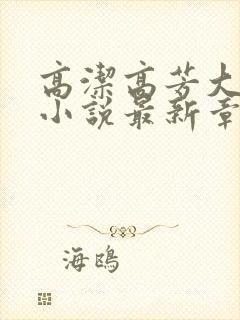 高潔高芳大
小說最新章
海鴎